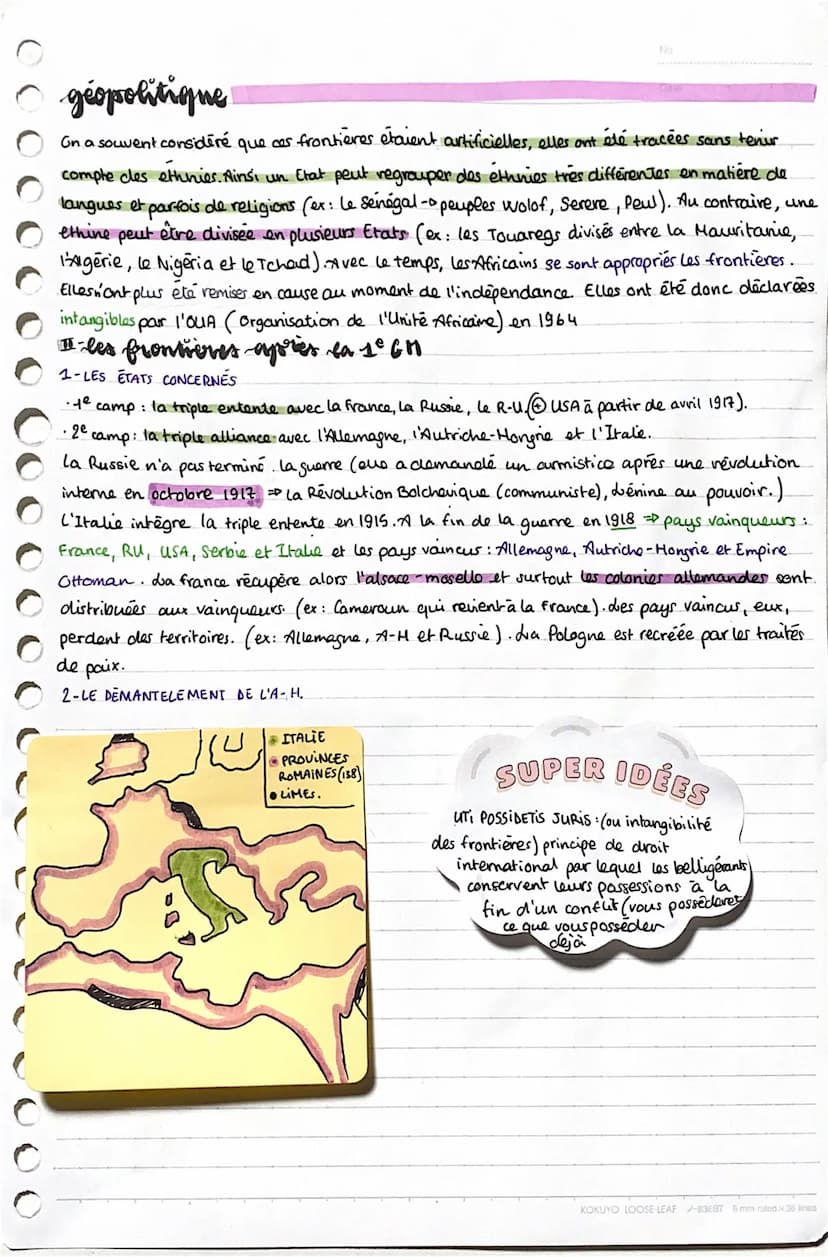 No
Date
géopolitique
On a souvent considéré que ces frontières étaient artificielles, elles ont été tracées sans tenir
compte des éthnies. Ainsi un Etat peut regrouper des éthnies très différentes en matière de
langues et parfois de religions (ex: Le Sénégal → peuples Wolof, Serere, Peul). Au contraire, une
ethine peut être divisée en plusieurs Etats (ex: les Touaregs divisés entre la Mauritanie,
l'Algérie, le Nigéria et le Tchad). Avec le temps, les Africains se sont appropriés les frontières.
Elles n'ont plus été remises en cause au moment de l'indépendance. Elles ont été donc déclarées
intangibles par l'OUA (Organisation de l'Unité Africaine) en 1964
II-les frontières après la 1e GM
1-LES ÉTATS CONCERNÉS
· 1e camp : la triple entente avec la France, La Russie, le R-U. (+ USA à partir de avril 1917).
· 2e camp : la triple alliance avec l'Allemagne, l'Autriche-Hongrie et l'Italie.
La Russie n'a pas terminé la guerre (elle a demandé un armistice après une révolution
interne en octobre 1917 ⇒ La Révolution Bolchevique (communiste), Lénine au pouvoir.)
L'Italie intègre la triple entente en 1915. A la fin de la guerre en 1918 ⇒ pays vainqueurs :
France, RU, USA, Serbie et Italie et les pays vaincus : Allemagne, Autriche-Hongrie et Empire
Ottoman. La france récupère alors l'alsace-moselle et surtout les colonies allemandes sont
distribuées aux vainqueurs (ex: Cameroun qui revient à la France). Les pays vaincus, eux,
perdent des territoires. (ex: Allemagne, A-H et Russie). La Pologne est recréée par les traités
de paix.
2-LE DÉMANTELEMENT DE L'A-H.
ITALIE
PROVINCES
ROMAINES (158)
LIMES.
SUPER IDÉES
UTI POSSIDETIS JURIS : (ou intangibilité
des frontières) principe de droit
international par lequel les belligérants
conservent leurs possessions à la
fin d'un conflit (vous posséderez
ce que vous posséder
déjà
KOKUYO LOOSE-LEAF ノ-836BT 6 mm ruled × 36 lines